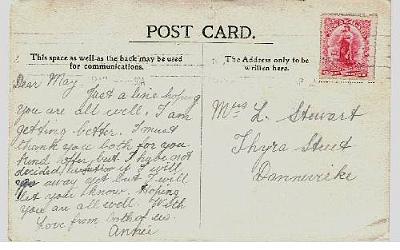 POST CARD.
This space as well as the back may be used
for communications.
The Address only to be
written here.
Dear May
Just a line hoping
you are all well. I am
getting better. I must
thank you both for you
kind offer but I have not
decided if I will
go away yet but I will
let you know. Hoping
you are all well. With
Love from both of us.
Mrs L. Stewart
Thyra Street
Dannevirke